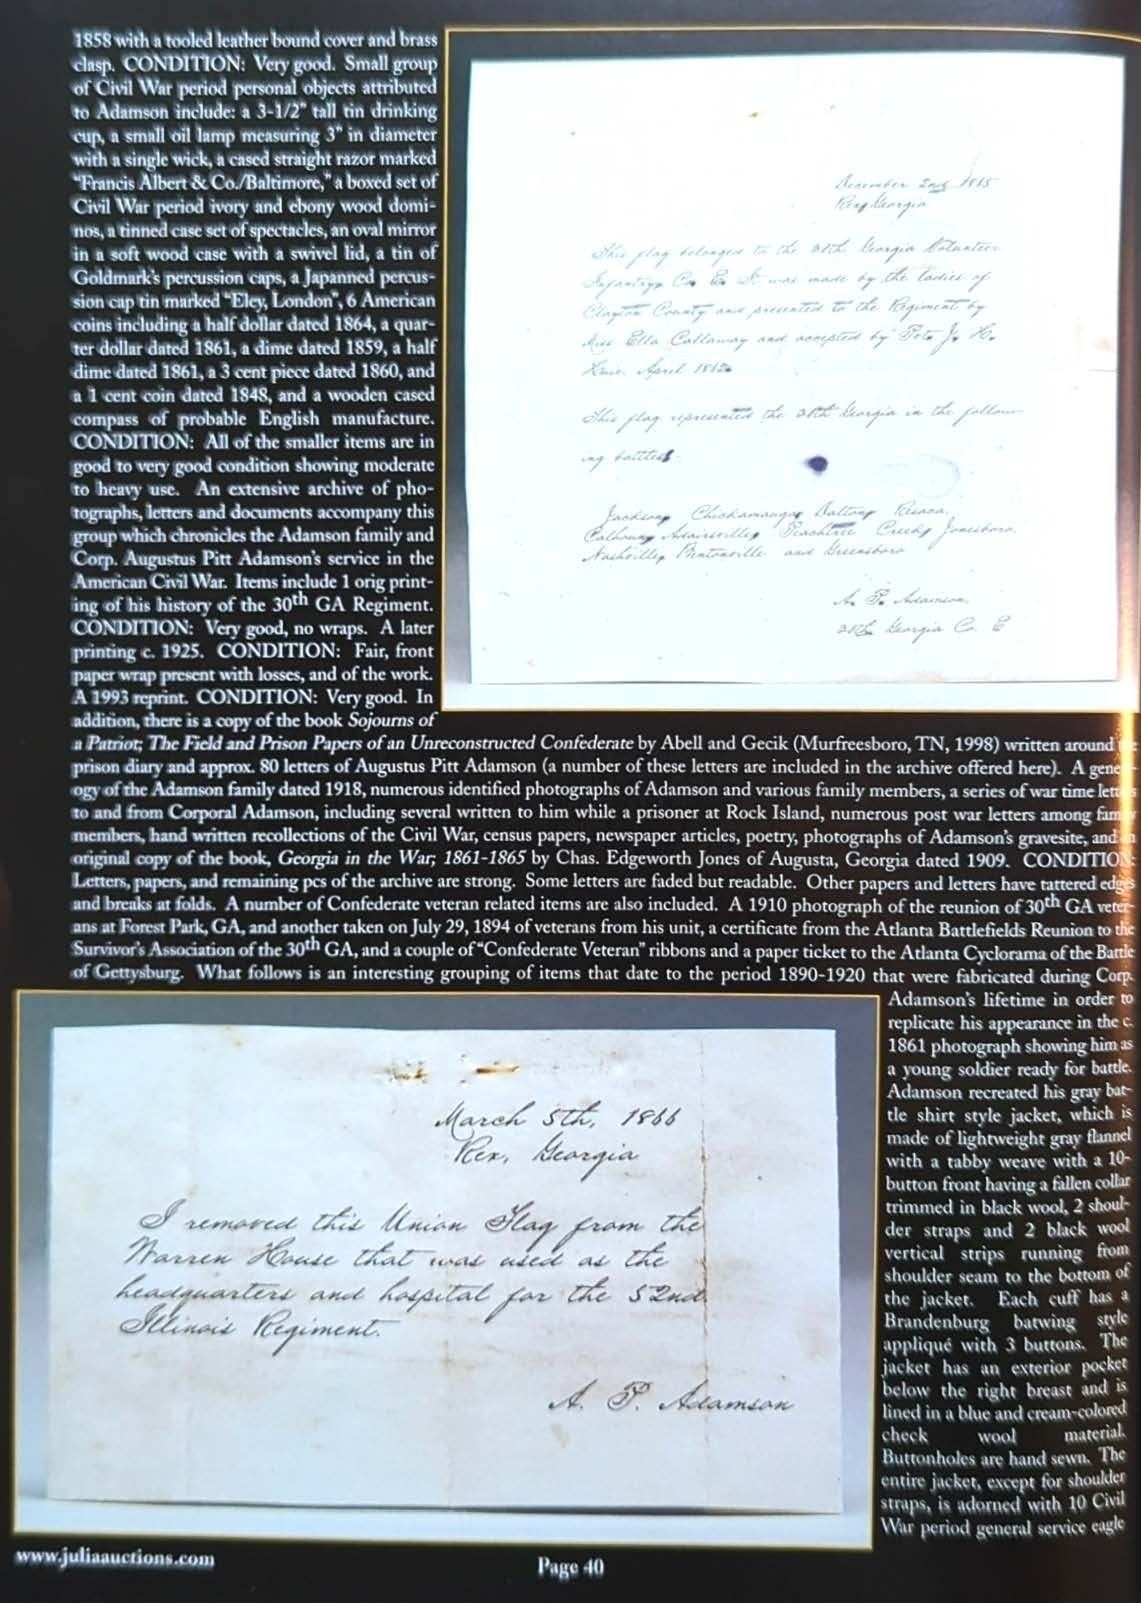 1858 with a tooled leather bound cover and brass
clasp. CONDITION: Very good. Small group
of Civil War period personal objects attributed
to Adamson include: a 3-1/2" tall tin drinking
cup, a small oil lamp measuring 3" in diameter
with a single wick, a cased straight razor marked
"Francis Albert & Co./Baltimore," a boxed set of
Civil War period ivory and ebony wood domi-
nos, a tinned case set of spectacles, an oval mirror
in a soft wood case with a swivel lid, a tin of
Goldmark's percussion caps, a Japanned percus-
sion cap tin marked "Eley, London", 6 American
coins including a half dollar dated 1864, a quar-
ter dollar dated 1861, a dime dated 1859, a half
dime dated 1861, a 3 cent piece dated 1860, and
a 1 cent coin dated 1848, and a wooden cased
compass of probable English manufacture.
CONDITION: All of the smaller items are in
good to very good condition showing moderate
to heavy use. An extensive archive of pho-
tographs, letters and documents accompany this
group which chronicles the Adamson family and
Corp. Augustus Pitt Adamson's service in the
American Civil War. Items include 1 orig print-
ing of his history of the 30th GA Regiment.
CONDITION: Very good, no wraps. A later
printing c. 1925. CONDITION: Fair, front
paper wrap present with losses, and of the work.
A 1993 reprint. CONDITION: Very good. In
addition, there is a copy of the book Sojourns of
a Patriot; The Field and Prison Papers of an Unreconstructed Confederate by Abell and Gecik (Murfreesboro, TN, 1998) written around
prison diary and approx. 80 letters of Augustus Pitt Adamson (a number of these letters are included in the archive offered here). A gene-
ogy of the Adamson family dated 1918, numerous identified photographs of Adamson and various family members, a series of war time
to and from Corporal Adamson, including several written to him while a prisoner at Rock Island, numerous post war letters among
members, hand written recollections of the Civil War, census papers, newspaper articles, poetry, photographs of Adamson's gravesite, and
original copy of the book, Georgia in the War; 1861-1865 by Chas. Edgeworth Jones of Augusta, Georgia dated 1909. CONDITION:
Letters, papers, and remaining pcs of the archive are strong. Some letters are faded but readable. Other papers and letters have tattered edges
and breaks at folds. A number of Confederate veteran related items are also included. A 1910 photograph of the reunion of 30th GA veter-
ans at Forest Park, GA, and another taken on July 29, 1894 of veterans from his unit, a certificate from the Atlanta Battlefields Reunion to the
Survivor's Association of the 30th GA, and a couple of "Confederate Veteran" ribbons and a paper ticket to the Atlanta Cyclorama of the Battle
of Gettysburg. What follows is an interesting grouping of items that date to the period 1890-1920 that were fabricated during Corp.
Adamson's lifetime in order to
replicate his appearance in the c.
1861 photograph showing him as
a young soldier ready for battle.
Adamson recreated his gray bat-
tle shirt style jacket, which is
made of lightweight gray flannel
with a tabby weave with a 10-
button front having a fallen collar
trimmed in black wool, 2 shoul-
der straps and 2 black wool
vertical strips running from
shoulder seam to the bottom of
the jacket. Each cuff has a
Brandenburg batwing style
appliqué with 3 buttons. The
jacket has an exterior pocket
below the right breast and is
lined in a blue and cream-colored
check wool material.
Buttonholes are hand sewn. The
entire jacket, except for shoulder
straps, is adorned with 10 Civil
War period general service eagle
December 2nd, 1865
Rex, Georgia
This flag belonged to the 30th Georgia Volunteer
Infantry, Co. E. It was made by the ladies of
Clayton County and presented to the Regiment by
Miss Ella Callaway and accepted by J. H.
April 1862.
This flag represented the 30th Georgia in the follow-
ing battles:
Jackson, Chickamauga, Dalton, Resaca,
Calhoun, Adairsville, Peachtree Creek, Jonesboro,
Nashville, Bentonville and Greensboro
A. P. Adamson,
30th Georgia Co. E
March 5th, 1866
Rex, Georgia
I removed this Union Flag from the
Warren House that was used as the
headquarters and hospital for the 52nd
Illinois Regiment.
A. P. Adamson
www.juliaauctions.com
Page 40